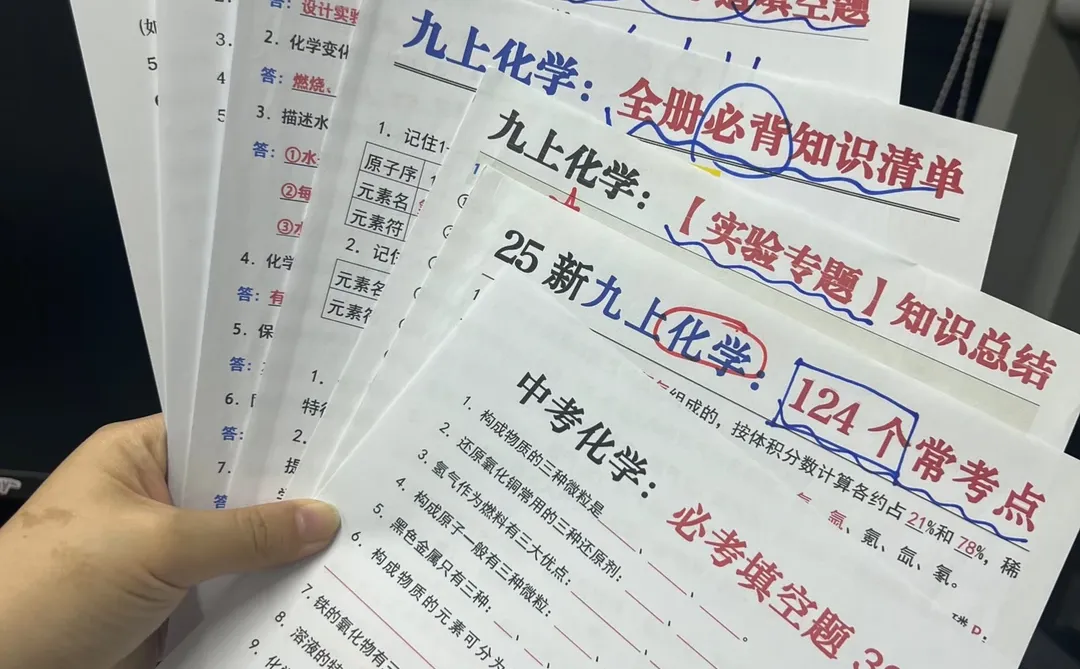 填空题
(如
5
3.
4
5
答：设计实验
2. 化学变化
答：燃烧、
3. 描述水
答：①水
②每
③水
4. 化学
答：有
5. 保
答：
6.
答：
7.
答
九上化学：全册必背知识清单
1. 记住1
原子序
元素名
元素符
2. 记住
元素名
元素符
1.
特征
2.
九上化学：【实验专题】知识总结
25新九上化学：124个常考点
组成的，按体积分数计算各约占21%和78%，稀
氩、氪、氙、氡。
中考化学：必考填空题
1. 构成物质的三种微粒是
2. 还原氧化铜常用的三种还原剂：
3. 氢气作为燃料有三大优点：
4. 构成原子一般有三种微粒：
5. 黑色金属只有三种：
6. 构成物质的元素可分为
7. 铁的氧化物有三
8. 溶液的特
9. 化